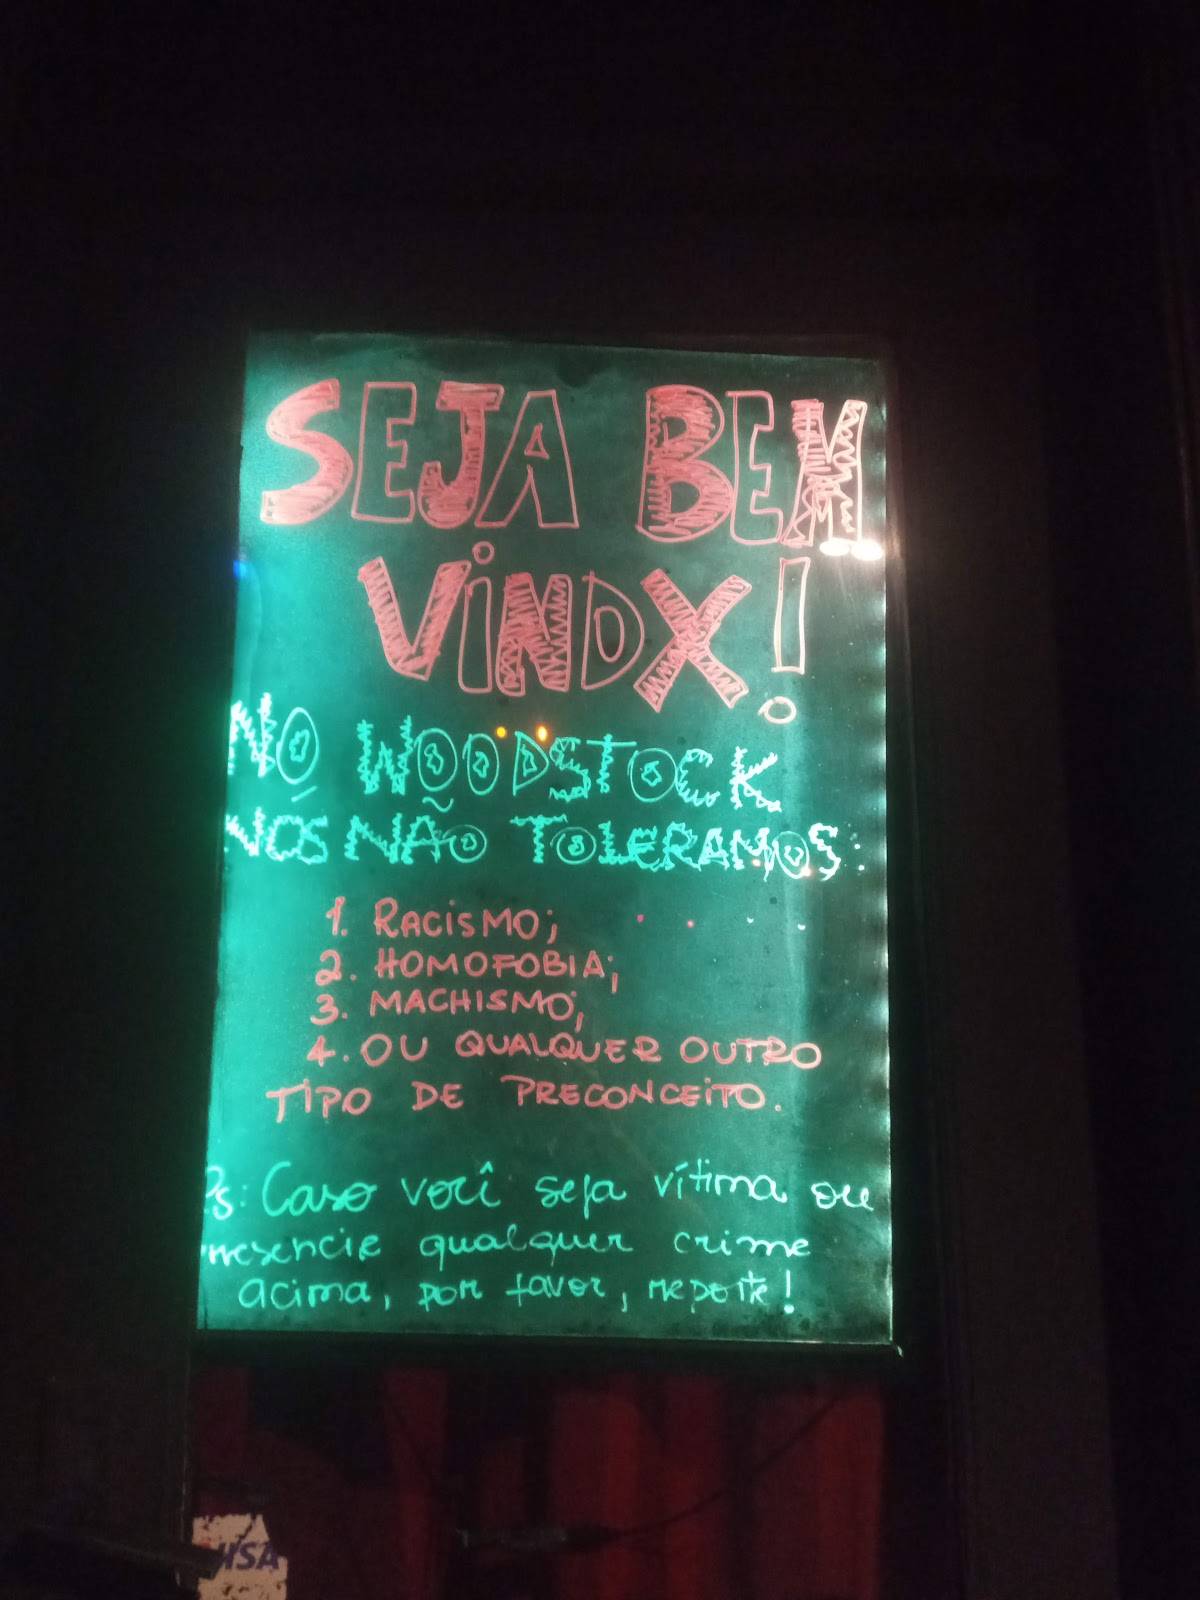 SEJA BEM
VINDX!
NO WOODSTOCK
NÓS NÃO TOLERAMOS:
1. RACISMO;
2. HOMOFOBIA;
3. MACHISMO;
4. OU QUALQUER OUTRO
TIPO DE PRECONCEITO.
Ps: Caso você seja vítima ou
presencie qualquer crime
acima, por favor, reporte!
VISA